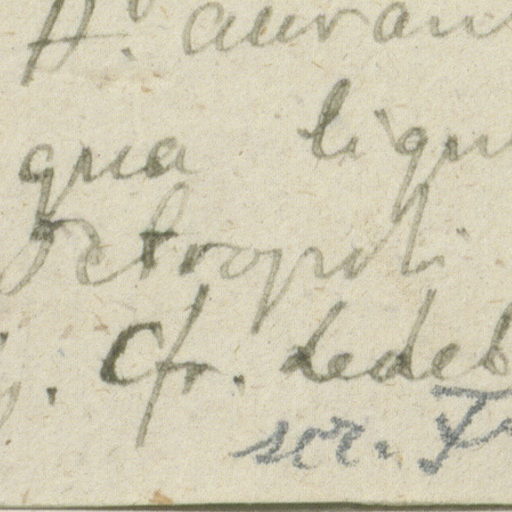 A. auran
qua liqu
Petropoli
Cfr. Ledeb
scr.